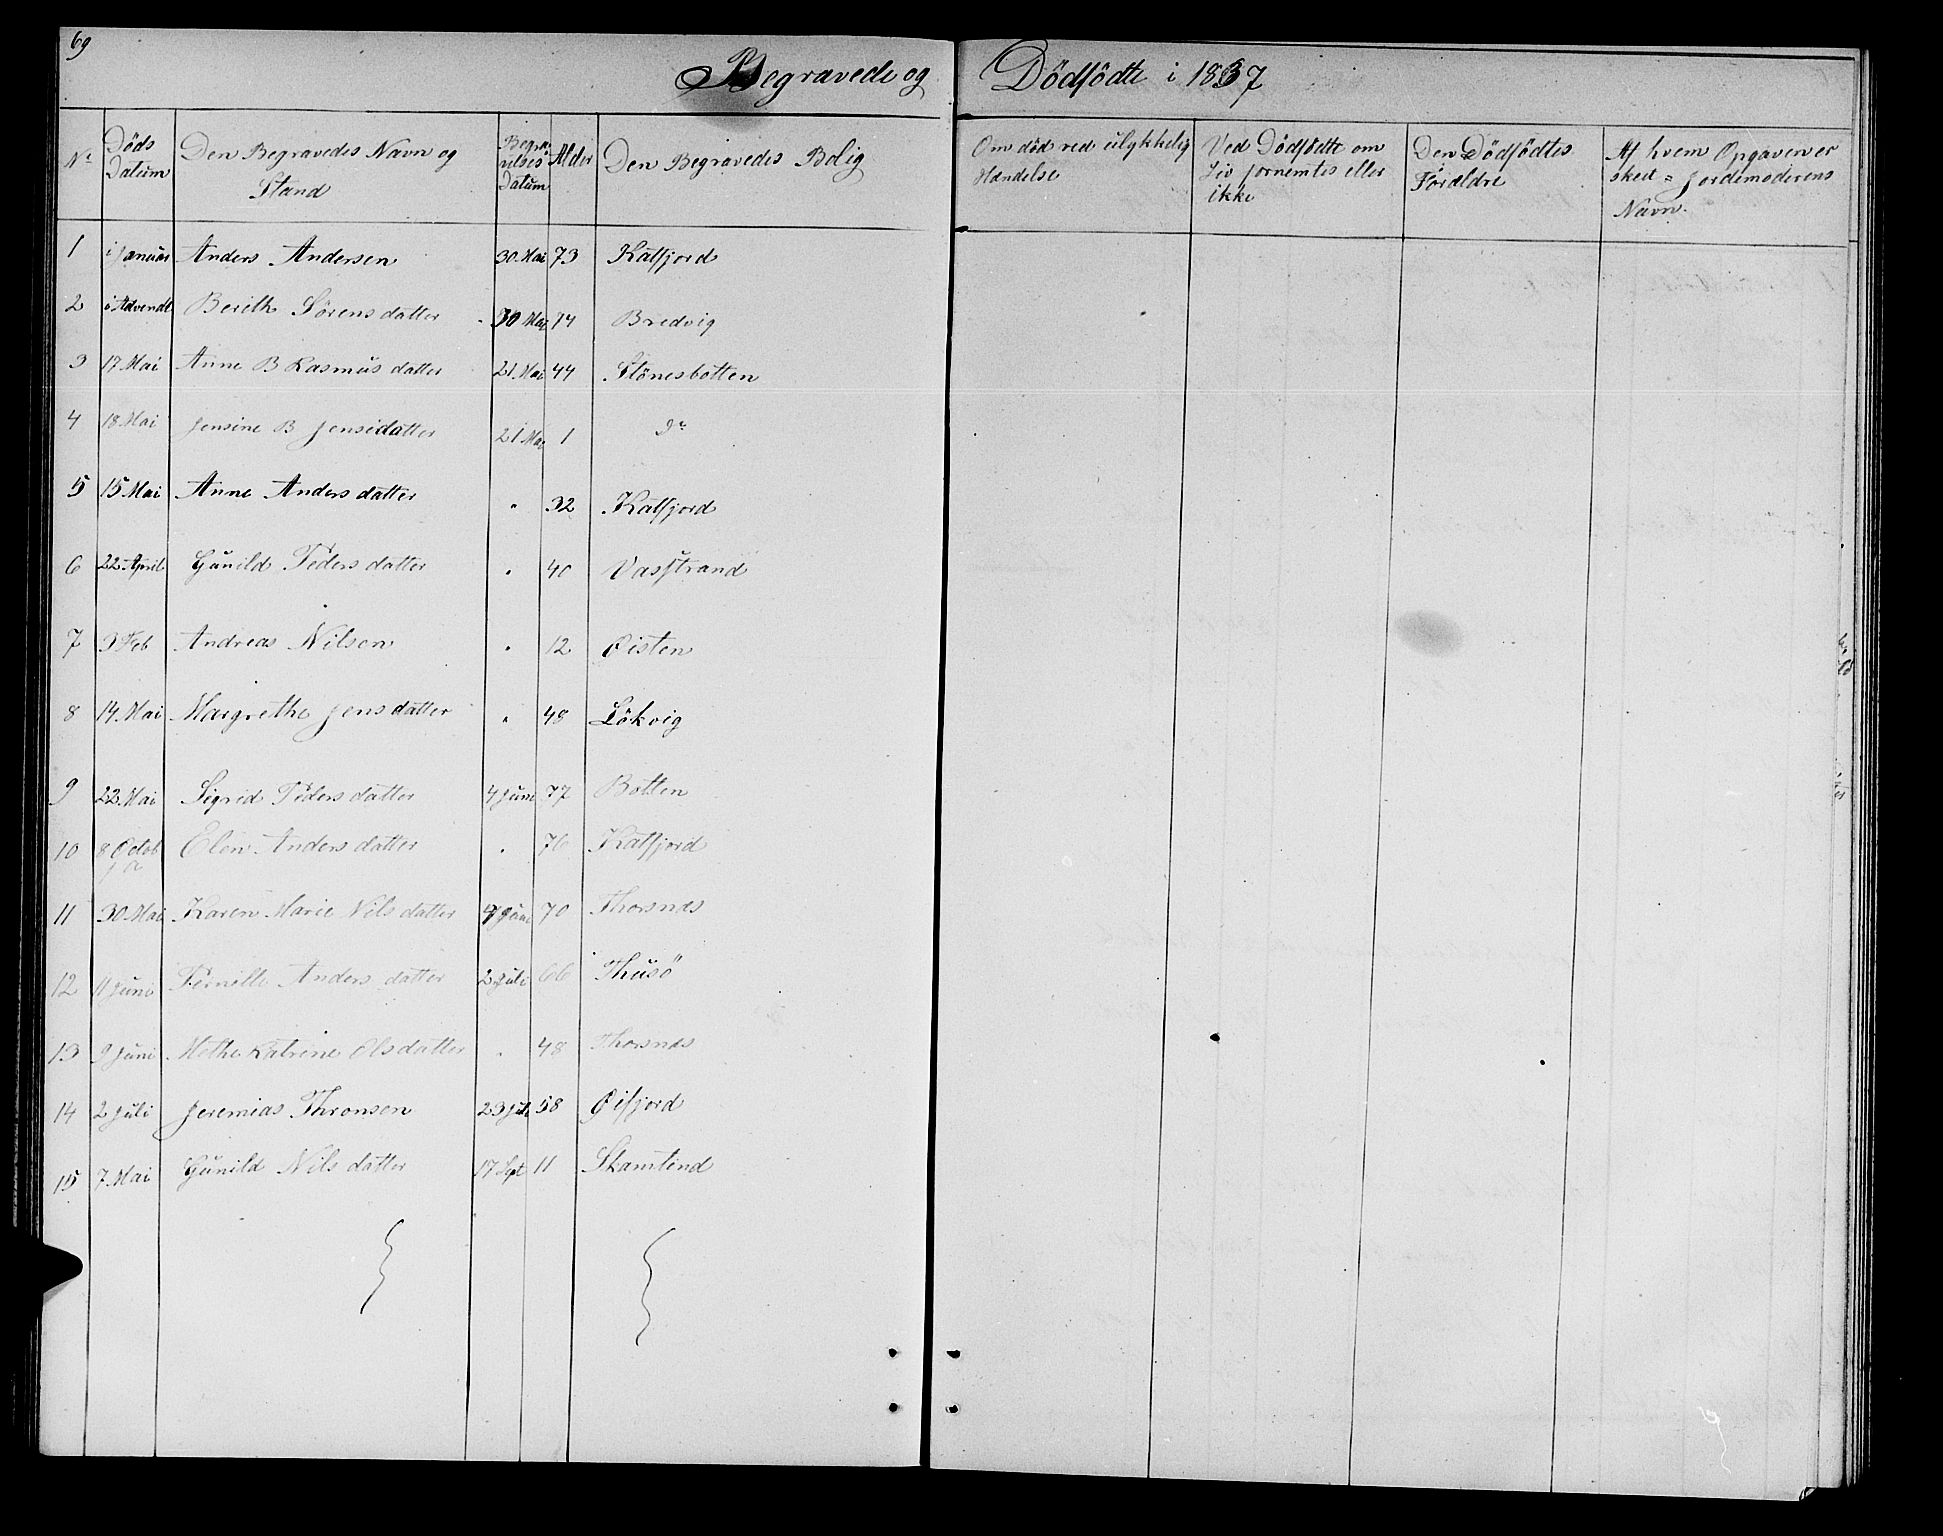 69
Begravede og Dödfödte i 1837
No Döds Datum Den Begravedes Navn og Stand Begravelses Datum Alder Den Begravedes Bolig Om död ved ulykkelig Hændelse Ved Dödfödte om Liv fornemtes eller ikke Den Dödfödtes Forældre Af hvem Opgaven er skeet = Jordemoderens Navn.
1 i Januar Anders Andersen 30 Mai 73 Katfjord
2 i Advendt Berith Sörensdatter 30 Mai 74 Bredvig
3 17 Mai Anne B Rasmusdatter 21 Mai 44 Stönesbotten
4 18 Mai Jensine B Jensedatter 21 Mai 1 do
5 15 Mai Anne Andersdatter " 32 Katfjord
6 22 April Gunild Pedersdatter " 40 Vasstrand
7 3 Feb Andreas Nilsen " 12 Oisten
8 14. Mai Margrethe Jensdatter " 48 Lökvig
9 22. Mai Sigrid Pedersdatter 4 Juni 77 Botten
10 8 Octob Elen Andersdatter " 76 Katfjord
11 30 Mai Karen Marie Nilsdatter 4 Juni 70 Thorsnæs
12 11 Juni Pernille Andersdatter 2 Juli 66 Thusö
13 9 Juni Methe Katrine Olsdatter " 48 Thorsnæs
14 2 Juli Jeremias Thronsen 23 Juli 58 Oifjord
15 7 Mai Gunild Nilsdatter 17 Sept 11 Skamtind